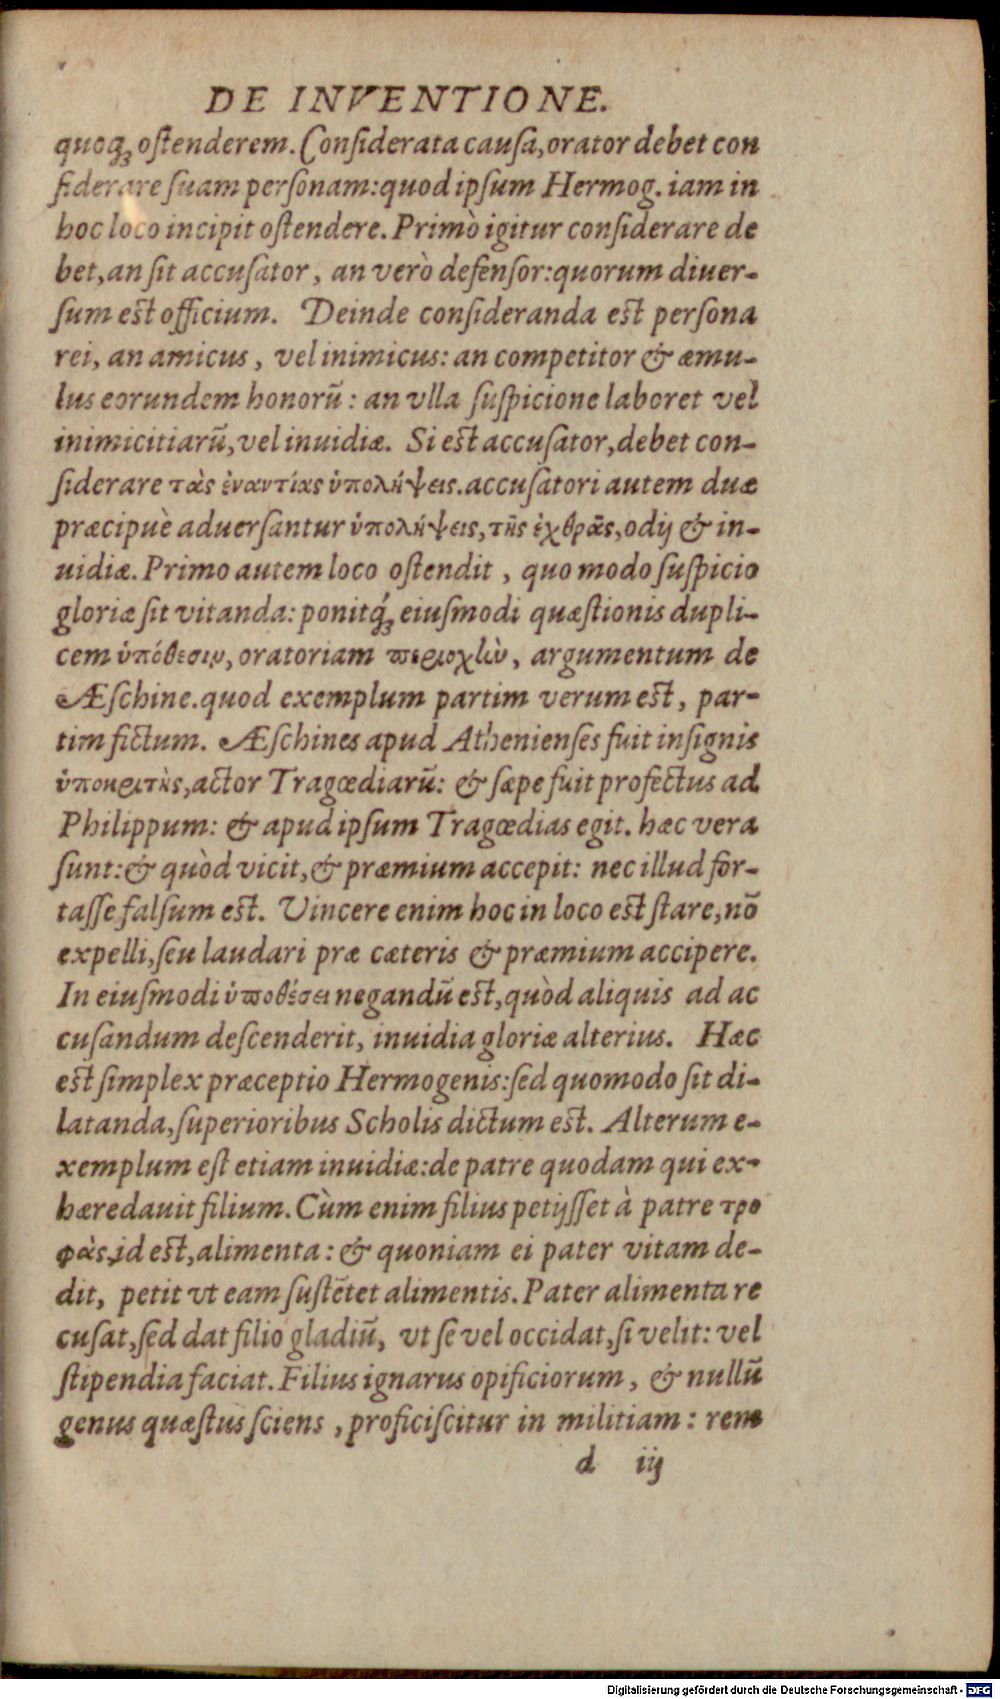 DE INVENTIONE.
quoq́ꝫ ostenderem. Considerata causa, orator debet con
siderare suam personam: quod ipsum Hermog. iam in
hoc loco incipit ostendere. Primò igitur considerare de
bet, an sit accusator, an verò defensor: quorum diuer-
sum est officium. Deinde consideranda est persona
rei, an amicus, vel inimicus: an competitor & æmu-
lus eorundem honorũ: an vlla suspicione laboret vel
inimicitiarũ, vel inuidiæ. Si est accusator, debet con-
siderare τὰς ἐναντίας ὑπολήψεις. accusatori autem duæ
præcipuè aduersantur ὑπολήψεις, τῆς ἐχθρᾶς, odij & in-
uidiæ. Primo autem loco ostendit, quo modo suspicio
gloriæ sit vitanda: ponitq́ꝫ eiusmodi quæstionis dupli-
cem ὑπόθεσιν, oratoriam περιοχὴν, argumentum de
Æschine. quod exemplum partim verum est, par-
tim fictum. Æschines apud Athenienses fuit insignis
ὑποκριτὴς, actor Tragœdiarũ: & sæpe fuit profectus ad
Philippum: & apud ipsum Tragœdias egit. hæc vera
sunt: & quòd vicit, & præmium accepit: nec illud for-
tasse falsum est. Vincere enim hoc in loco est stare, nõ
expelli, seu laudari præ cæteris & præmium accipere.
In eiusmodi ὑποθέσει negandũ est, quòd aliquis ad ac
cusandum descenderit, inuidia gloriæ alterius. Hæc
est simplex præceptio Hermogenis: sed quomodo sit di-
latanda, superioribus Scholis dictum est. Alterum e-
xemplum est etiam inuidiæ: de patre quodam qui ex-
hæredauit filium. Cùm enim filius petijsset à patre τρο
φὰς, id est, alimenta: & quoniam ei pater vitam de-
dit, petit vt eam sustẽtet alimentis. Pater alimenta re
cusat, sed dat filio gladiũ, vt se vel occidat, si velit: vel
stipendia faciat. Filius ignarus opificiorum, & nullũ
genus quæstus sciens, proficiscitur in militiam: rem
d iij
Digitalisierung gefördert durch die Deutsche Forschungsgemeinschaft - DFG